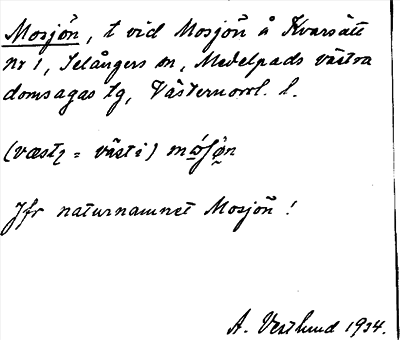 Mosjön, t vid Mosjön å Kvarsätt
nr 1, Selångers sn, Medelpads västra
domsagas tg, Västernorrl. l.
(væstı = väst i) mo̱ʃø̱n
Jfr naturnamnet Mosjön!
A. Vestlund 1934.